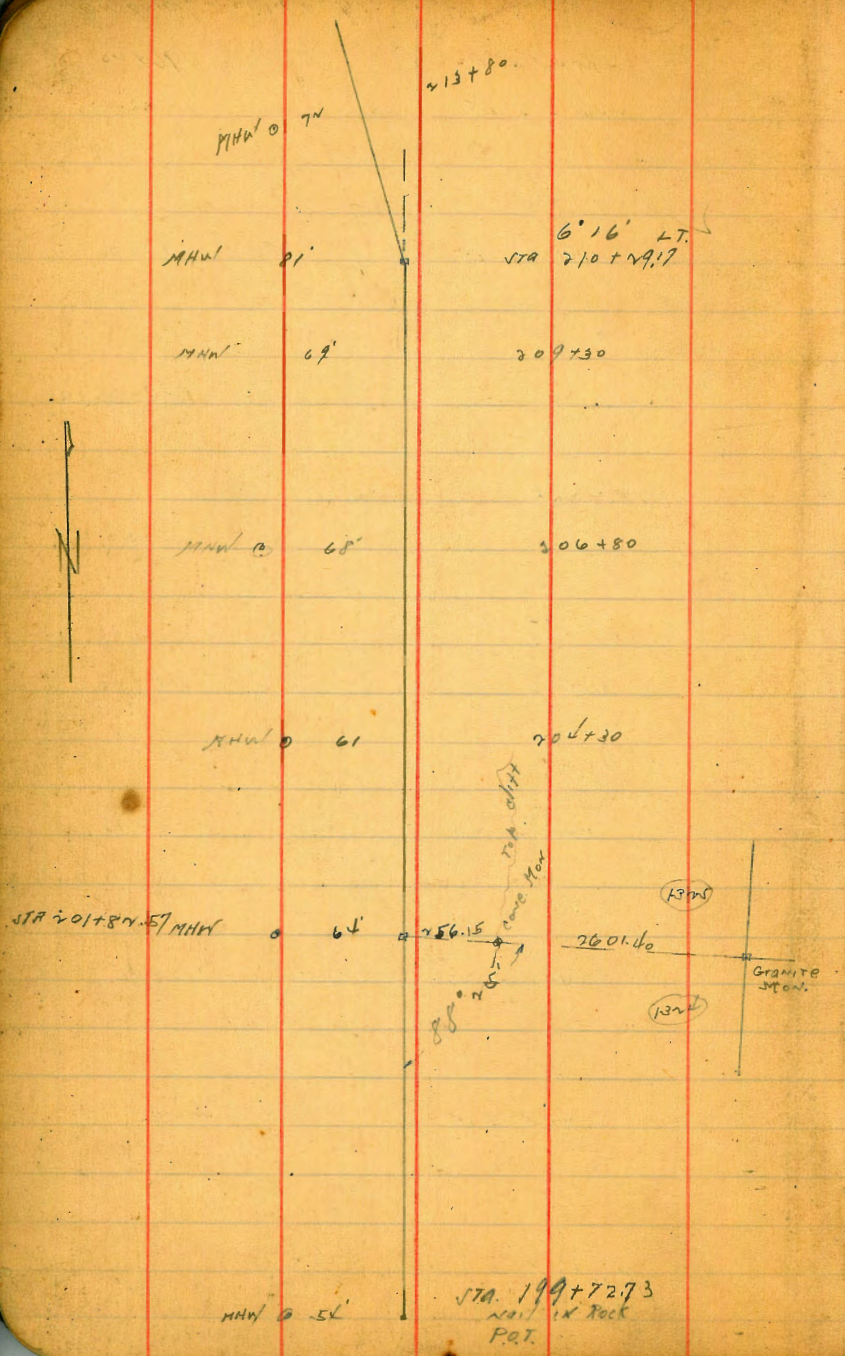 213+80.
MHW 72
6° 16' LT.
MHW 81' STA 210+29.17
MHW 69' 209+30
N
MHW 68' 206+80
MHW 61 204+30
Top cliff
conc. Mon
1325
STA 201+82.57 MHW 64' 256.15 2601.40
Granite
Mon.
1324
88°
STA. 199+72.73
MHW 54' Nail in Rock
P.O.T.